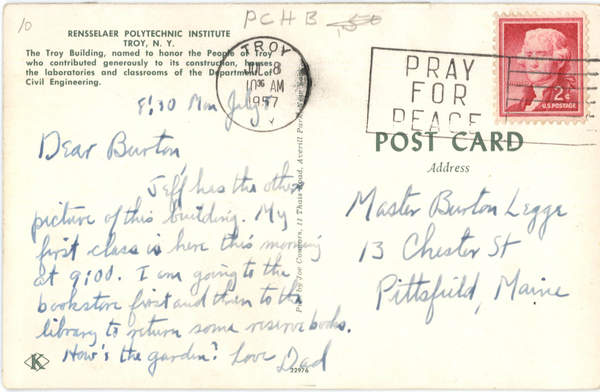 10
PCHB
RENSSELAER POLYTECHNIC INSTITUTE
TROY, N. Y.
The Troy Building, named to honor the People of Troy
who contributed generously to its construction, houses
the laboratories and classrooms of the Department of
Civil Engineering.
TROY
JUL 8
10 AM
1957
PRAY
FOR
PEACE
2¢
U.S. POSTAGE
8:30 Mon July 8
Dear Burton,
Jeff has the other
picture of this building. My
first class is here this morning
at 9:00. I am going to the
bookstore first and then to the
library to return some reserve books.
How's the garden? Love Dad
K
22976
Pub. by Joe Connors, 11 Thais Road, Averill Park, New York
POST CARD
Address
Master Burton Legge
13 Chester St
Pittsfield, Maine